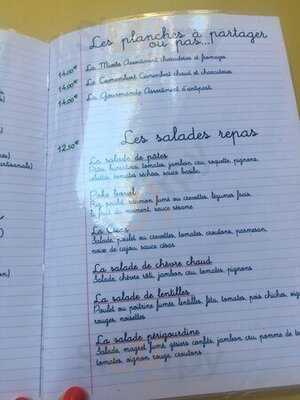 Les planches à partager
ou pas...!
14,00€ La Mixte Assortiment charcuteries et fromages
14,00€ Le Camembert Camembert chaud et charcuterie
14,00€ La Gourmande Assortiment d'antipasti
12,50€ Les salades repas
La salade de pâtes
tomates, jambon cru, roquette, pignons,
tomates séchées, sauce basilic
Poke bowl
Riz, poulet, saumon fumé ou crevettes, légumes frais,
le fruit du moment, sauce sésame
La Cæs
Salade, poulet ou crevettes, tomates, croûtons, parmesan,
noix de cajou, sauce césar
La salade de chèvre chaud
Salade, chèvre rôti, jambon cru, tomates, pignons
La salade de lentilles
Poulet ou poitrine fumée, lentilles, féta, tomates, pois chiches,
rouges, noisettes
La salade périgourdine
Salade, magret fumé, gésiers confits, jambon cru, pomme de
tomates, oignon rouge, croûtons